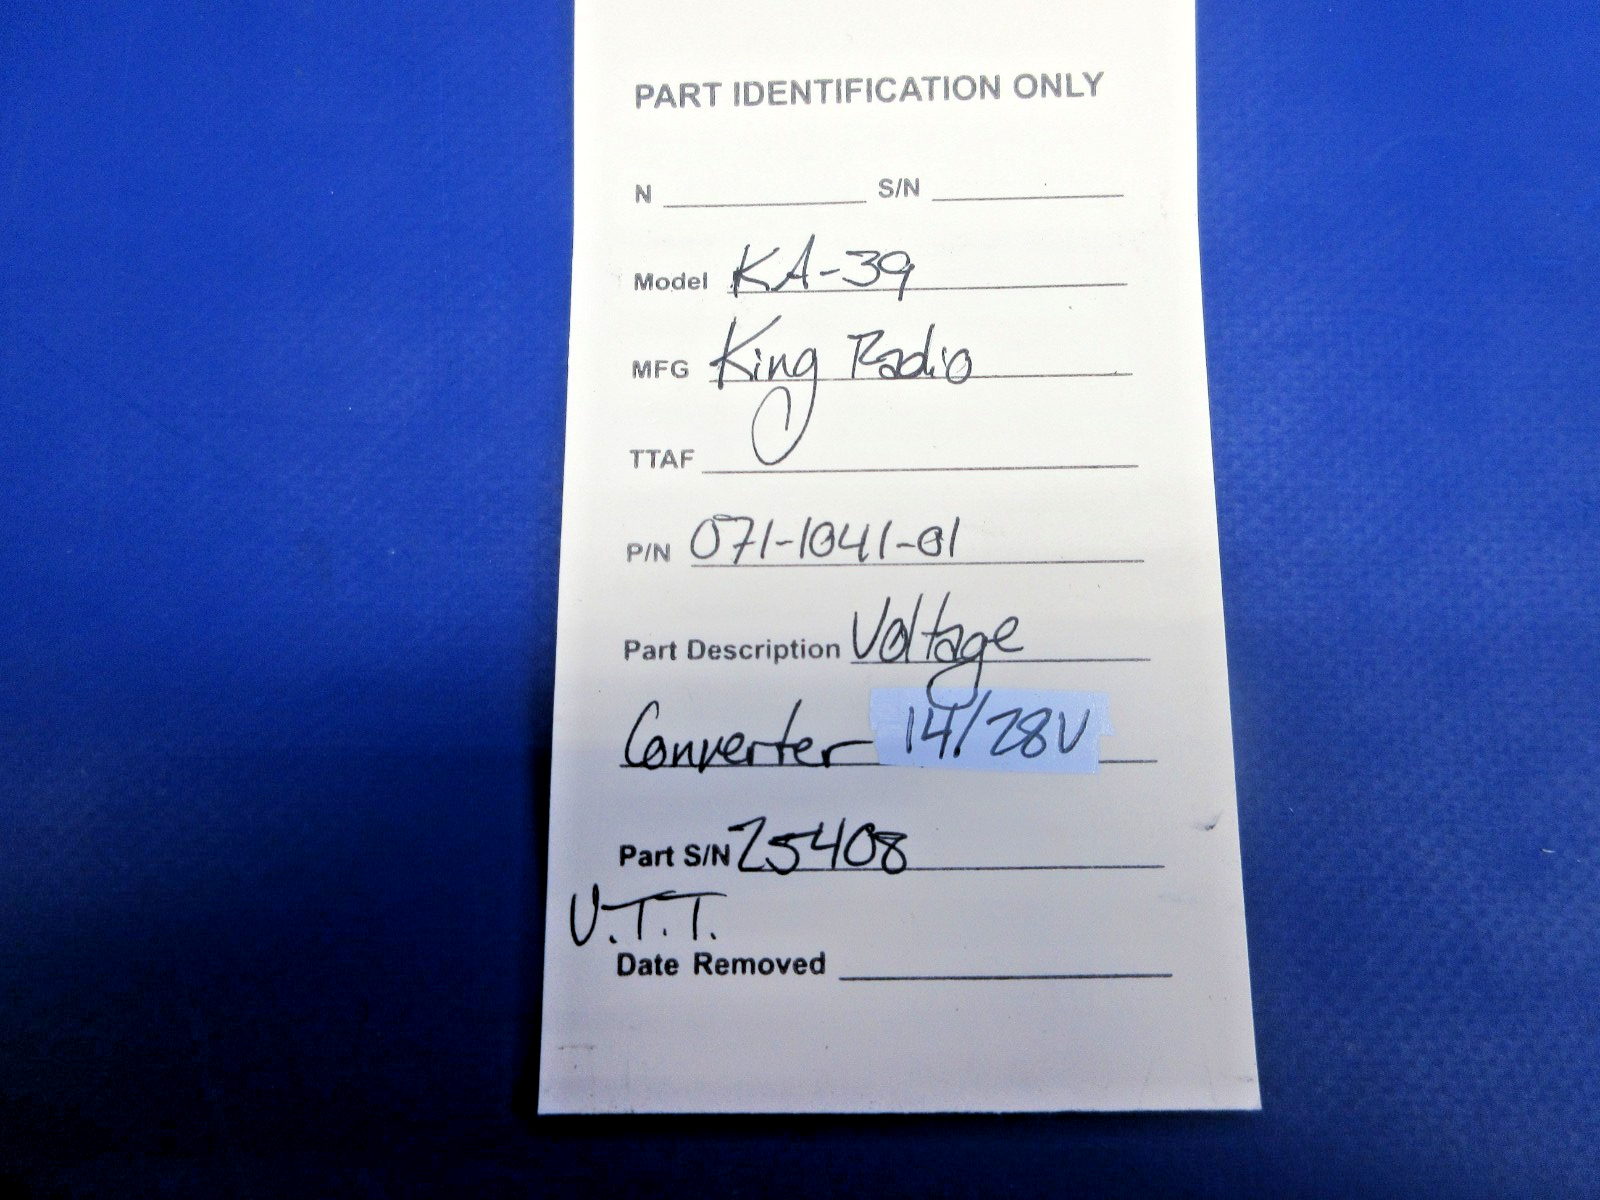 PART IDENTIFICATION ONLY
N S/N
Model KA-39
MFG King Radio
TTAF
P/N 071-1041-01
Part Description Voltage
Converter 14/28V
Part S/N 25408
U.T.T.
Date Removed